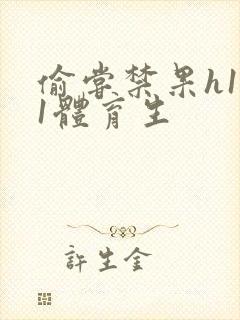 偷嘗禁果h1
1體育生
許生金